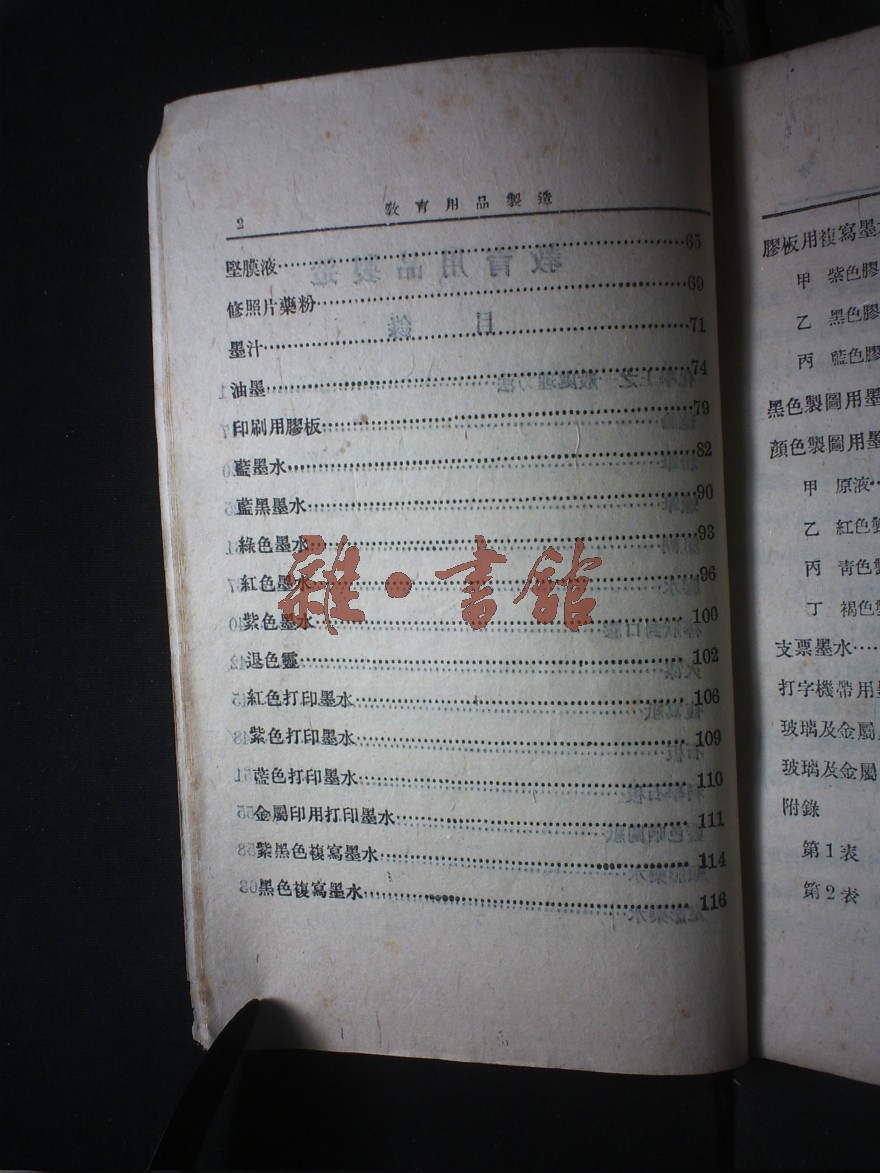 2 教育用品製造
堅膜液……65
修照片藥粉……69
墨汁……71
油墨……74
印刷用膠板……79
藍墨水……82
藍黑墨水……90
綠色墨水……93
紅色墨水……96
紫色墨水……100
退色靈……102
紅色打印墨水……106
紫色打印墨水……109
藍色打印墨水……110
金屬印用打印墨水……111
紫黑色複寫墨水……114
黑色複寫墨水……116
雜·書館
膠板用複寫墨
甲 紫色膠
乙 黑色膠
丙 藍色膠
黑色製圖用墨
顏色製圖用墨
甲 原液
乙 紅色
丙 青色
丁 褐色
支票墨水……
打字機帶用
玻璃及金屬
玻璃及金屬
附錄
第1表
第2表